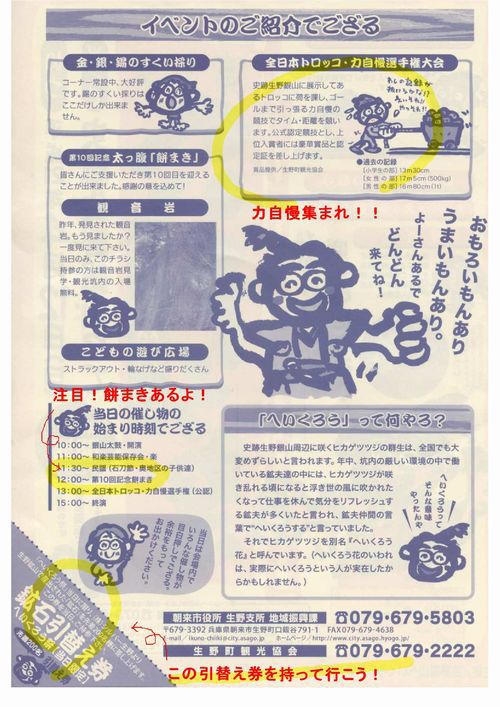 イベントのご紹介でござる
金・銀・錫のすくい採り
コーナー常設中、大好評
です。錫のすくい採りは
ここだけしか出来ませ
ん。
全日本トロッコ・力自慢選手権大会
史跡生野銀山に展示してあ
るトロッコに荷を課し、ゴール
まで引っ張る力自慢の
競技でタイム・距離を競い
ます。公式認定競技とし、上
位入賞者には豪華賞品と認
定証を差し上げます。
賞品提供/生野町観光協会
●過去の記録
[小学生の部] 13m30cm
[女性の部] 17m5cm (500kg)
[男性の部] 16m80cm (1t)
力自慢集まれ!!
第10回記念 太っ腹「餅まき」
皆さんにご支援いただき第10回目を迎える
ことが出来ました。感謝の意を込めて!
観音岩
昨年、発見された観音
岩。もう見ましたか?
一度見に来て下さい。
当日のみ、このチラシ
持参の方は観音岩見
学・観光坑内の入場
無料。
こどもの遊び広場
ストラックアウト・輪なげなど盛りだくさん
おもろいもんあり
うまいもんあり。
よーさんあるで
どんどん
来てね!
注目!餅まきあるよ!
当日の催し物の
始まり時刻でござる
10:00~ 銀山太鼓・開演
11:00~ 和楽芸能保存会・楽
11:30~ 民謡(石刀節・奥地区の子供達)
12:00~ 第10回記念餅まき
13:00~ 全日本トロッコ・力自慢選手権(公認)
15:00~ 終演
当日は会場内で
いろんな催し物が
目白押しでござる。
余裕をもって
お出かけください。
「へいくろう」って何やろ?
史跡生野銀山周辺に咲くヒカゲツツジの群生は、全国でも大
変めずらしいと言われます。年中、坑内の厳しい環境の中で働
いている鉱夫達の中には、ヒカゲツツジが咲
き乱れる頃になると浮き世の風に吹かれた
くなって仕事を休んで気分をリフレッシュす
る鉱夫が多くいたと言われ、鉱夫仲間の言
葉で"へいくろうする"と言っていました。
それでヒカゲツツジを別名『へいくろう
花』と呼んでいます。(へいくろう花のいわれ
は、実際にへいくろうという人が実在したか
らかもしれません。)
へいくろうって
そんな意味
やったんや
鉱石引替え券
朝来市役所 生野支所 地域振興課
☎079・679・5803
〒679-3392 兵庫県朝来市生野町口銀谷791-1 FAX079-679-4638
e-mail/ikuno-chiiki@city.asago.hyogo.jp ホームページ/http://www.city.asago.hyogo.jp/
生野町観光協会
☎079・679・2222
この引替え券を持って行こう!